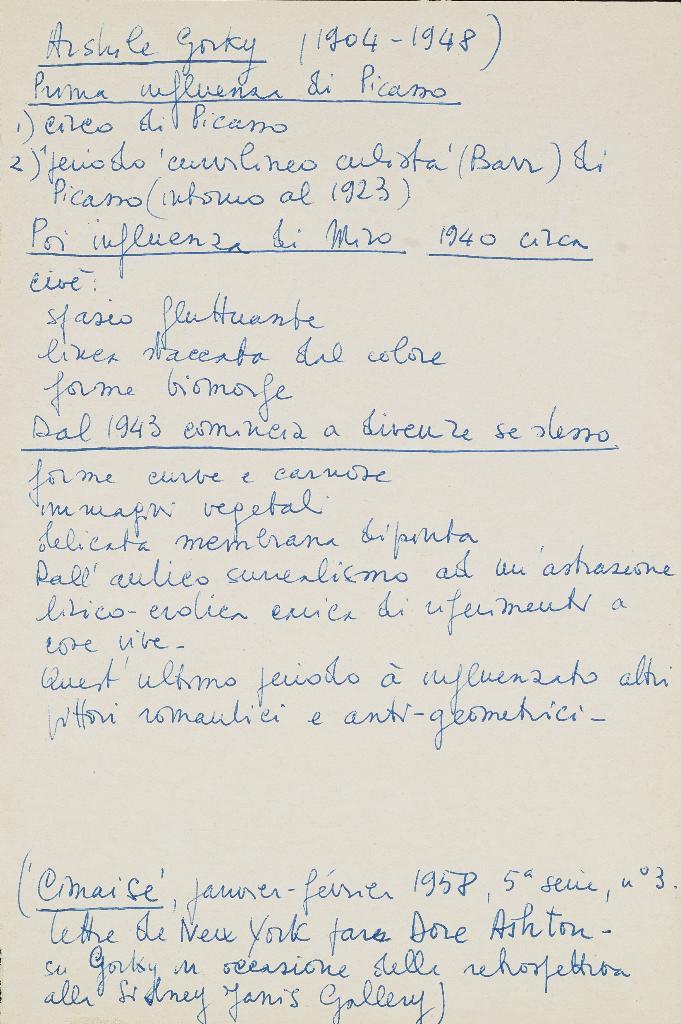 Arshile Gorky (1904-1948)
Prima influenza di Picasso
1) circo di Picasso
2) periodo 'curvilineo cubista' (Barr) di
Picasso (intorno al 1923)
Poi influenza di Miro 1940 circa
cioè:
spazio fluttuante
linea staccata dal colore
forme biomorfe
Dal 1943 comincia a divenire se stesso
forme curve e carnose
immagini vegetali
delicata membrana dipinta
Dall'antico surrealismo ad un'astrazione
lirico-erotica carica di riferimenti a
cose vive-
Quest'ultimo periodo à influenzato altri
pittori romantici e anti-geometrici-
('Cimaise', janvier-février 1958, 5ª serie, n°3.
lettre de New York par Dore Ashton-
su Gorky in occasione della retrospettiva
alla Sidney Janis Gallery)